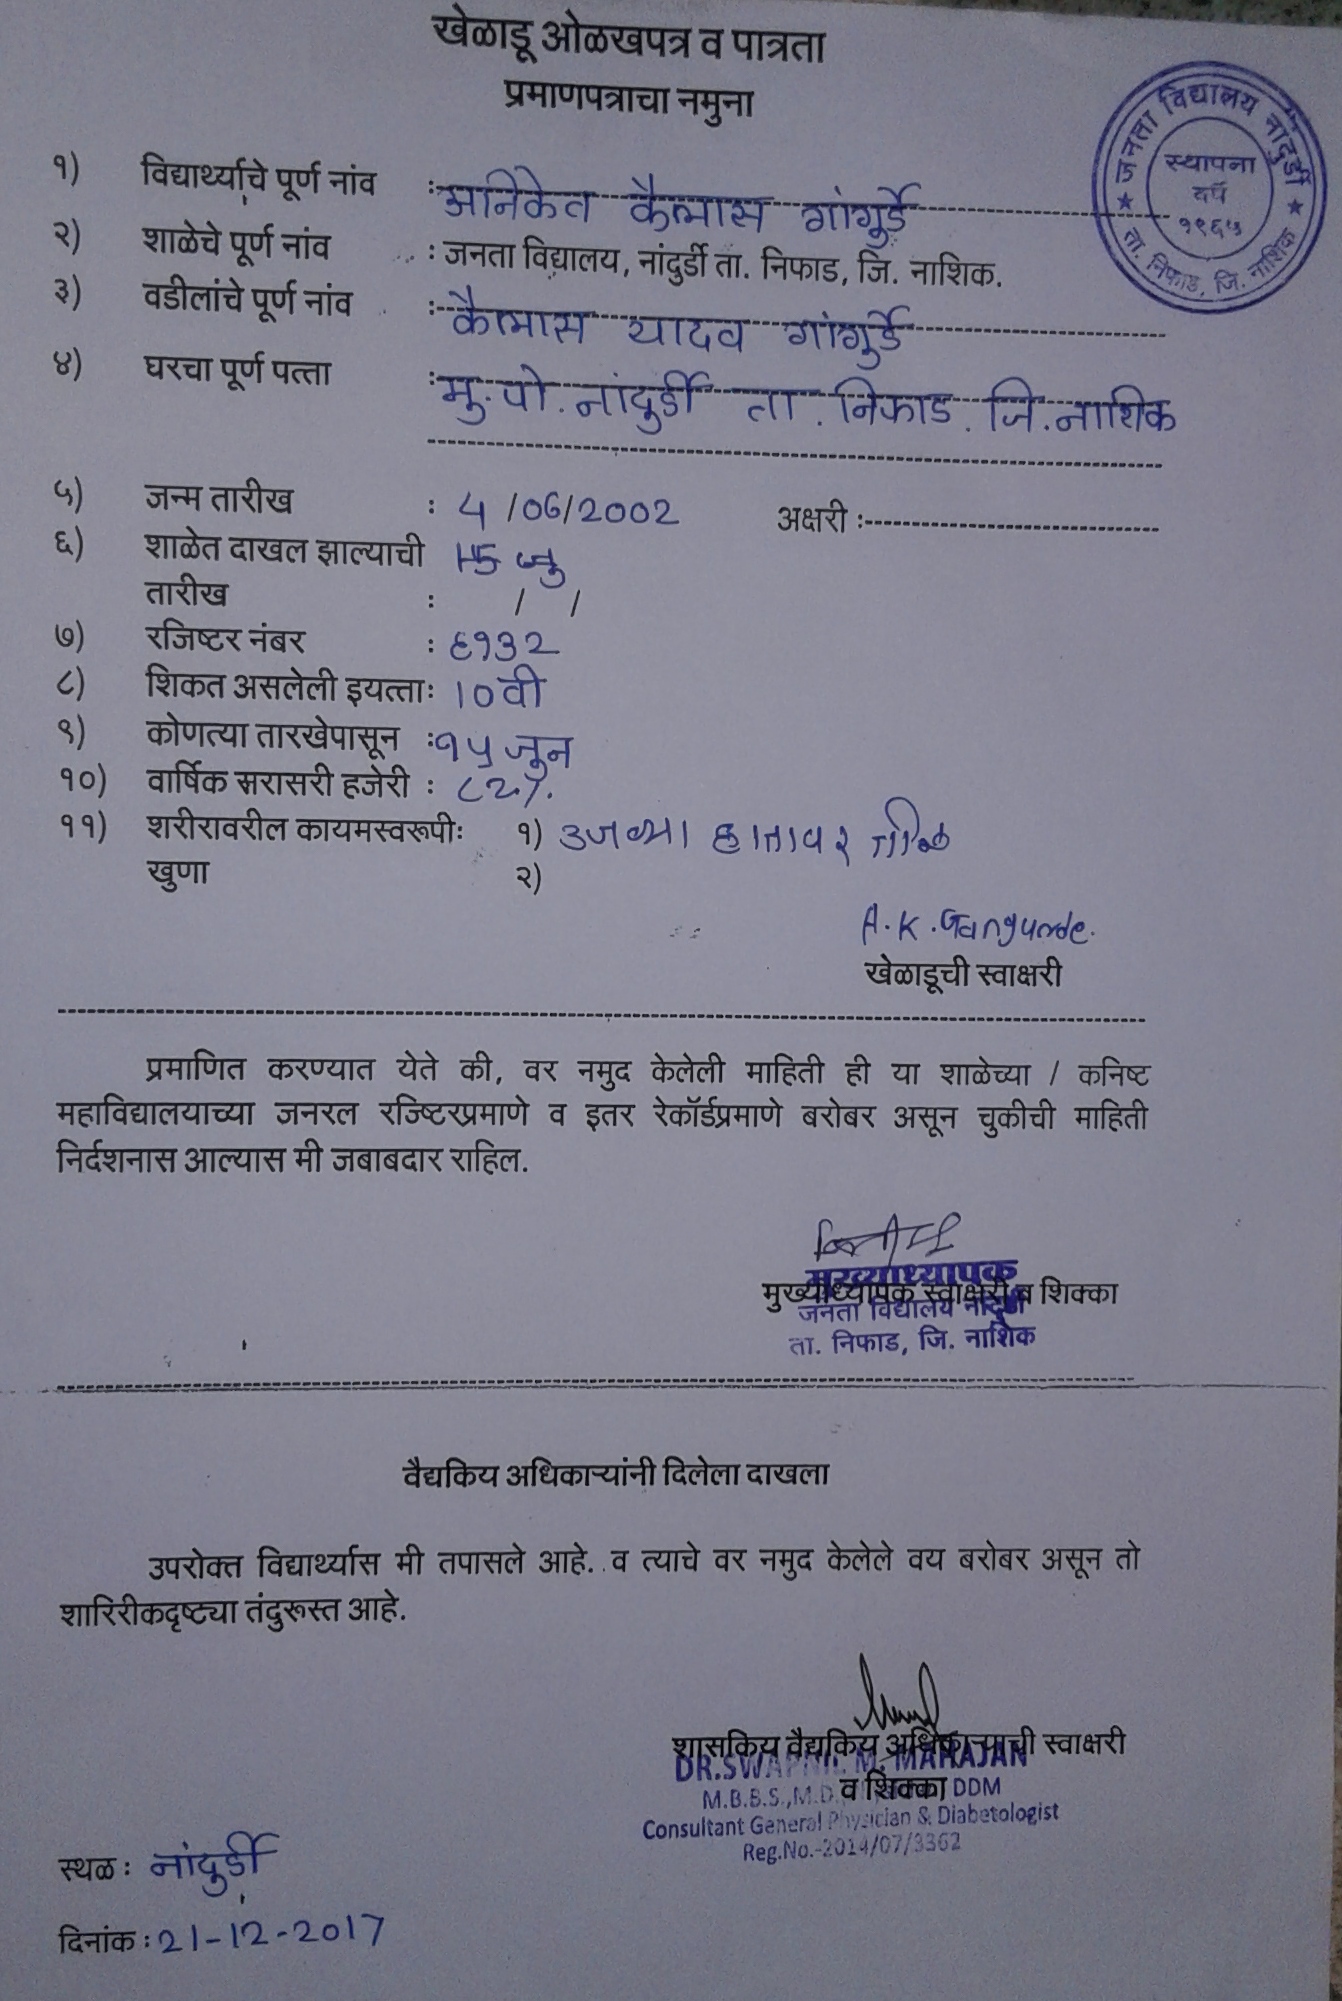 खेळाडू ओळखपत्र व पात्रता
प्रमाणपत्राचा नमुना
जनता विद्यालय नांदुर्डी
स्थापना
वर्ष
१९६५
ता. निफाड, जि. नाशिक
१) विद्यार्थ्याचे पूर्ण नांव : अनिकेत कैलास गांगुर्डे
२) शाळेचे पूर्ण नांव : जनता विद्यालय, नांदुर्डी ता. निफाड, जि. नाशिक.
३) वडीलांचे पूर्ण नांव : कैलास यादव गांगुर्डे
४) घरचा पूर्ण पत्ता : मु. पो. नांदुर्डी ता. निफाड. जि. नाशिक
५) जन्म तारीख : 4/06/2002 अक्षरी :
६) शाळेत दाखल झाल्याची
तारीख : / /
७) रजिष्टर नंबर : ६१३२
८) शिकत असलेली इयत्ताः 10 वी
९) कोणत्या तारखेपासून : १५ जून
१०) वार्षिक सरासरी हजेरी : ८२%.
११) शरीरावरील कायमस्वरूपीः १) उजव्या हातावर तीळ
खुणा २)
A. K. Gangurde.
खेळाडूची स्वाक्षरी
प्रमाणित करण्यात येते की, वर नमुद केलेली माहिती ही या शाळेच्या / कनिष्ट
महाविद्यालयाच्या जनरल रज्स्टिरप्रमाणे व इतर रेकॉर्डप्रमाणे बरोबर असून चुकीची माहिती
निर्दशनास आल्यास मी जबाबदार राहिल.
मुख्याध्यापक
मुख्याध्यापक स्वाक्षरी व शिक्का
जनता विद्यालय नांदुर्डी
ता. निफाड, जि. नाशिक
वैद्यकिय अधिकाऱ्यांनी दिलेला दाखला
उपरोक्त विद्यार्थ्यास मी तपासले आहे. व त्याचे वर नमुद केलेले वय बरोबर असून तो
शारिरीकदृष्ट्या तंदुरूस्त आहे.
शासकिय वैद्यकिय अधिकाऱ्याची स्वाक्षरी
DR.SWAPNIL M. MAHAJAN
व शिक्का
M.B.B.S.,M.D. DDM
Consultant General Physician & Diabetologist
Reg.No.-2014/07/3362
स्थळ : नांदुर्डी
दिनांक : 21-12-2017